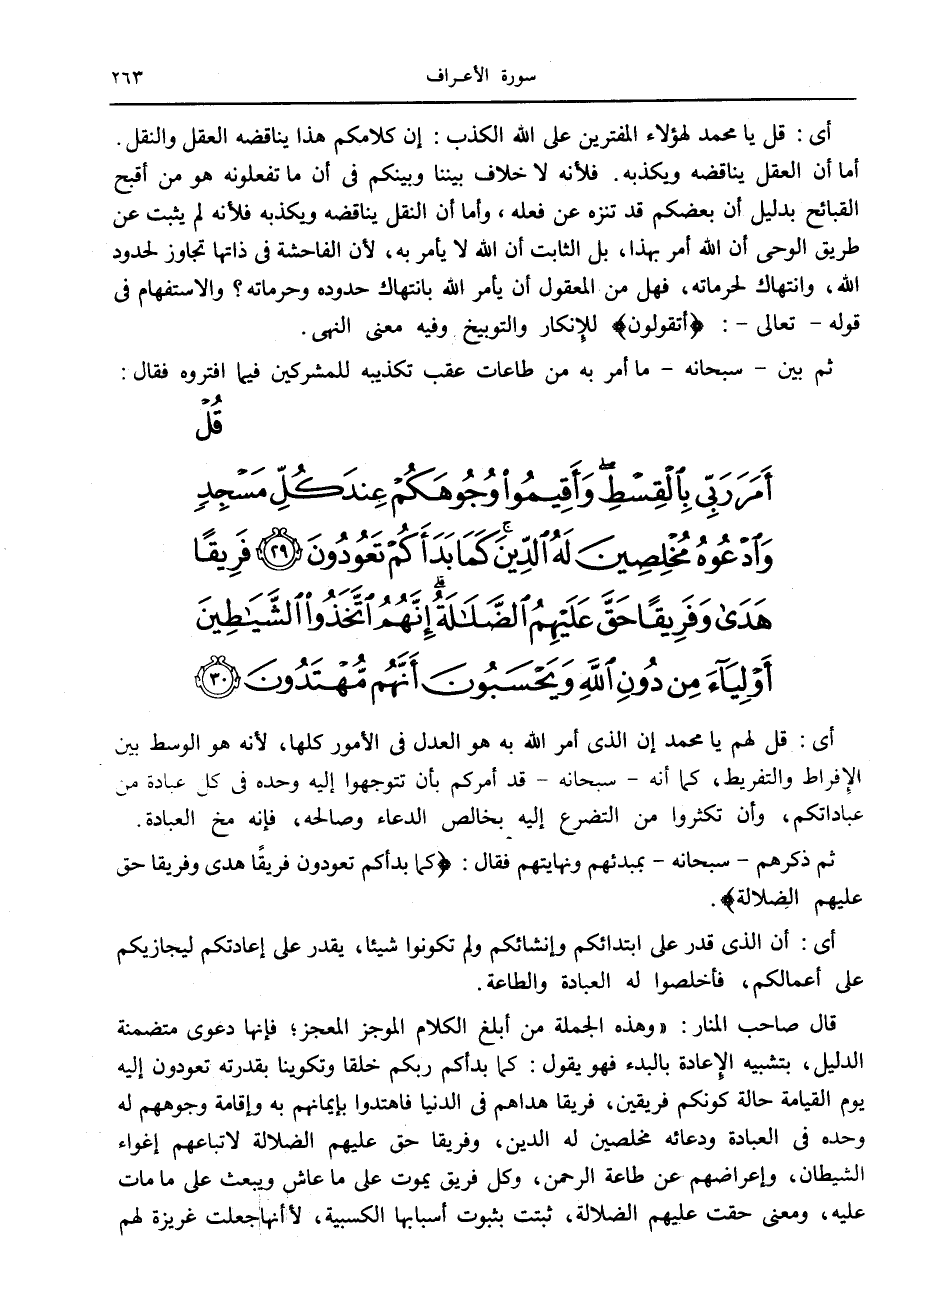 سورة الأعراف ٢٦٣
أى : قل يا محمد لهؤلاء المفترين على الله الكذب : إن كلامكم هذا يناقضه العقل والنقل .
أما أن العقل يناقضه ويكذبه . فلأنه لا خلاف بيننا وبينكم فى أن ما تفعلونه هو من أقبح
القبائح بدليل أن بعضكم قد تنزه عن فعله ، وأما أن النقل يناقضه ويكذبه فلأنه لم يثبت عن
طريق الوحى أن الله أمر بهذا، بل الثابت أن الله لا يأمر به، لأن الفاحشة فى ذاتها تجاوز لحدود
الله، وانتهاك لحرماته، فهل من المعقول أن يأمر الله بانتهاك حدوده وحرماته؟ والاستفهام فى
قوله - تعالى - : ﴿أتقولون﴾ للإنكار والتوبيخ وفيه معنى النهى .
ثم بين - سبحانه - ما أمر به من طاعات عقب تكذيبه للمشركين فيما افتروه فقال :
قُلْ
أَمَرَ رَبِّى بِٱلْقِسْطِ ۖ وَأَقِيمُوا۟ وُجُوهَكُمْ عِندَ كُلِّ مَسْجِدٍ
وَٱدْعُوهُ مُخْلِصِينَ لَهُ ٱلدِّينَ ۚ كَمَا بَدَأَكُمْ تَعُودُونَ ﴿٢٩﴾ فَرِيقًا
هَدَىٰ وَفَرِيقًا حَقَّ عَلَيْهِمُ ٱلضَّلَـٰلَةُ ۗ إِنَّهُمُ ٱتَّخَذُوا۟ ٱلشَّيَـٰطِينَ
أَوْلِيَآءَ مِن دُونِ ٱللَّهِ وَيَحْسَبُونَ أَنَّهُم مُّهْتَدُونَ ﴿٣٠﴾
أى : قل لهم يا محمد إن الذى أمر الله به هو العدل فى الأمور كلها، لأنه هو الوسط بين
الإفراط والتفريط، كما أنه - سبحانه - قد أمركم بأن تتوجهوا إليه وحده فى كل عبادة من
عباداتكم، وأن تكثروا من التضرع إليه بخالص الدعاء وصالحه، فإنه مخ العبادة.
ثم ذكرهم - سبحانه - بمبدئهم ونهايتهم فقال : ﴿كما بدأكم تعودون فريقًا هدى وفريقا حق
عليهم الضلالة﴾ .
أى : أن الذى قدر على ابتدائكم وإنشائكم ولم تكونوا شيئا، يقدر على إعادتكم ليجازيكم
على أعمالكم، فأخلصوا له العبادة والطاعة .
قال صاحب المنار : «وهذه الجملة من أبلغ الكلام الموجز المعجز؛ فإنها دعوى متضمنة
الدليل، بتشبيه الإعادة بالبدء فهو يقول : كما بدأكم ربكم خلقا وتكوينا بقدرته تعودون إليه
يوم القيامة حالة كونكم فريقين، فريقا هداهم فى الدنيا فاهتدوا بإيمانهم به وإقامة وجوههم له
وحده فى العبادة ودعائه مخلصين له الدين، وفريقا حق عليهم الضلالة لاتباعهم إغواء
الشيطان، وإعراضهم عن طاعة الرحمن، وكل فريق يموت على ما عاش ويبعث على ما مات
عليه، ومعنى حقت عليهم الضلالة، ثبتت بثبوت أسبابها الكسبية، لا أنها جعلت غريزة لهم